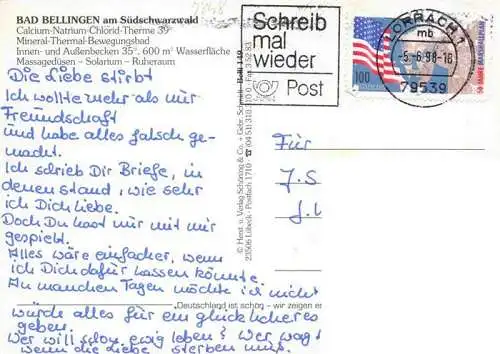 BAD BELLINGEN am Südschwarzwald
Calcium-Natrium-Chlorid-Therme 39°
Mineral-Thermal-Bewegungsbad
Innen- und Außenbecken 35°, 600 m² Wasserfläche
Massagedüsen – Solarium – Ruheraum
Die Liebe stirbt
Ich wollte mehr als nur
Freundschaft
und habe alles falsch ge-
macht.
Ich schrieb Dir Briefe, in
denen stand, wie sehr
ich Dich liebe.
Doch Du hast nur mit mir
gespielt.
Alles wäre einfacher, wenn
ich Dich dafür hassen könnte.
An manchen Tagen möchte ich nicht
„Deutschland ist schön – wir zeigen es
würde alles für ein glücklicheres
geben.
Wer will schon ewig leben? Wer wagt
wenn die Liebe sterben muß.
© Herst. u. Verlag Schöning & Co. + Gebr. Schmidt
23506 Lübeck · Postfach 1710
Schreib
mal
wieder
Post
LÖRRACH 1
mb
-5.-6.98-18
79539
100
50 JAHRE MARSHALLPLAN
Für
J.S
J.L